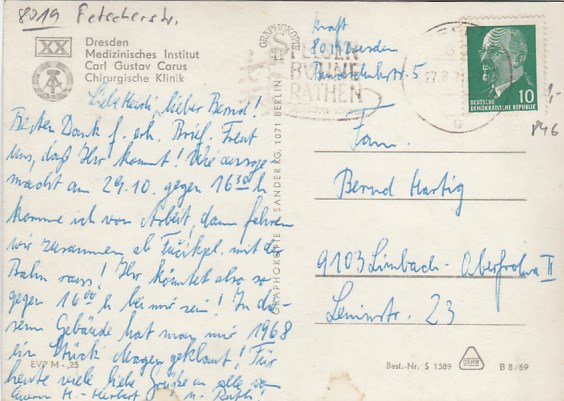 8019 Fetscherstr.
XX
Dresden
Medizinisches Institut
Carl Gustav Carus
Chirurgische Klinik
Liebe Heidi, lieber Bernd!
Besten Dank f. erh. Brief. Freut
uns, daß Ihr kommt! Wie ausge-
macht am 29.10. gegen 16³⁰ h
komme ich von Arbeit, dann fahren
wir zusammen ab Fučikpl. mit der
Bahn raus! Ihr könntet also so
gegen 16⁰⁰ h bei mir sein! In die-
sem Gebäude hat man mir 1968
ein Stück Magen geklaut! Für
heute viele liebe Grüße an alle von
Eurem H. Herbert u. Ruth!
EVP M -,25
GRAPHOKOPIE H. SANDER KG, 1071 BERLIN
GRAPHOKOPIE
Kraft
8019 Dresden
5
FELSEN
BÜHNE
RATHEN
27.8.7
10
DEUTSCHE
DEMOKRATISCHE REPUBLIK
1,-
846
Fam.
Bernd Hartig
9103 Limbach-Oberfrohna II
Leninstr. 23
Best.-Nr. S 1389
B 8/69